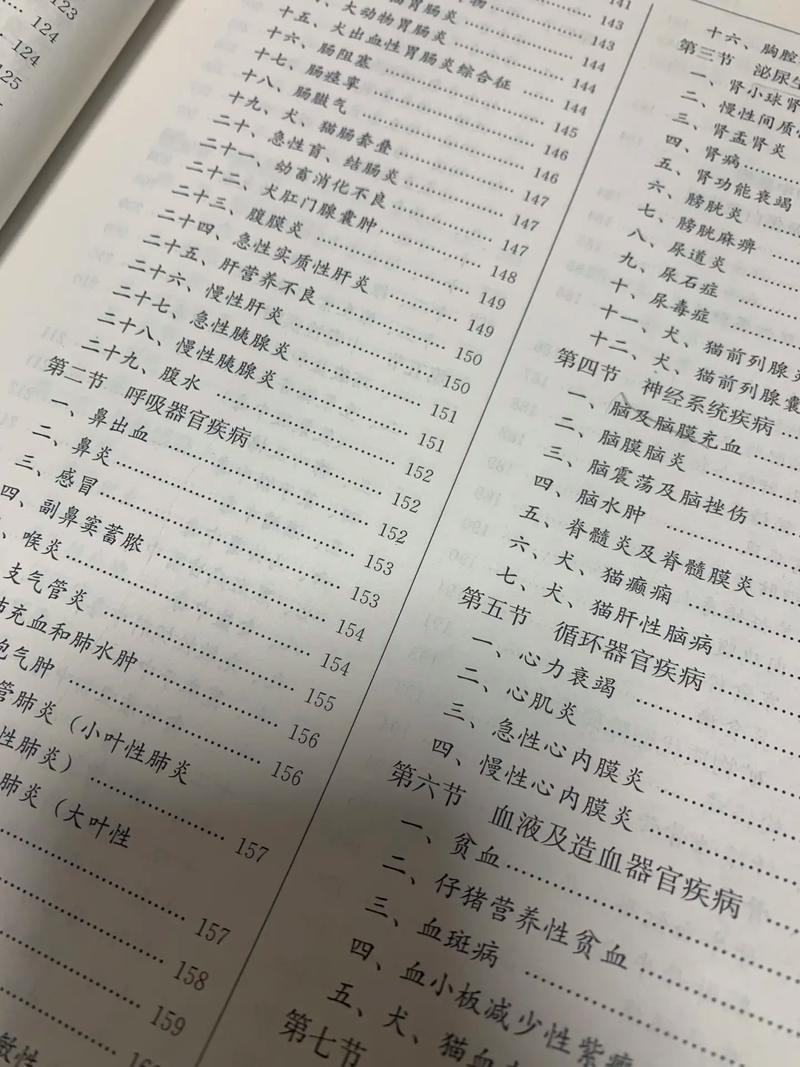 123
124
124
125
141
物 143
猫胃肠炎 143
、大动物胃肠炎 144
十五、犬出血性胃肠炎综合征 …… 144
十六、肠阻塞 145
十七、肠痉挛 146
十八、肠臌气 146
十九、犬、猫肠套叠 147
二十、急性盲、结肠炎 147
二十一、幼畜消化不良 147
二十二、犬肛门腺囊肿 148
二十三、腹膜炎 149
二十四、急性实质性肝炎 149
二十五、肝营养不良 150
二十六、慢性肝炎 150
二十七、急性胰腺炎 151
二十八、慢性胰腺炎 151
二十九、腹水 152
第二节 呼吸器官疾病 152
一、鼻出血 152
二、鼻炎 153
三、感冒 153
四、副鼻窦蓄脓 154
、喉炎 154
支气管炎 155
肺充血和肺水肿 156
泡气肿 156
管肺炎（小叶性肺炎
性肺炎） 157
肺炎（大叶性
157
158
159
敏性
十六、胸腔
第三节 泌尿生
一、肾小球肾
二、慢性间质性
三、肾盂肾炎
四、肾病
五、肾功能衰竭
六、膀胱炎
七、膀胱麻痹
八、尿道炎
九、尿石症
十、尿毒症
十一、犬、猫前列腺炎
十二、犬、猫前列腺囊
第四节 神经系统疾病
一、脑及脑膜充血
二、脑膜脑炎
三、脑震荡及脑挫伤
四、脑水肿
五、脊髓炎及脊髓膜炎
六、犬、猫癫痫
七、犬、猫肝性脑病
第五节 循环器官疾病
一、心力衰竭
二、心肌炎
三、急性心内膜炎
四、慢性心内膜炎
第六节 血液及造血器官疾病
一、贫血
二、仔猪营养性贫血
三、血斑病
四、血小板减少性紫癜
五、犬、猫血
第七节